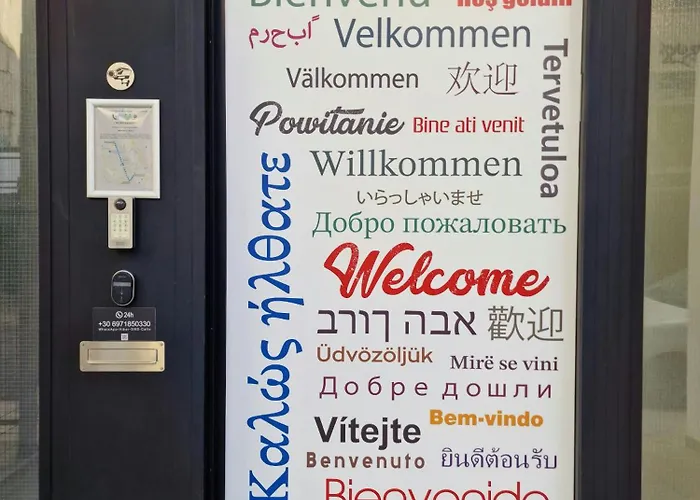 Bienvenu
Hoş geldin
مرحباً
Velkommen
Tervetuloa
Välkommen
欢迎
Powitanie
Bine ati venit
Καλώς ήλθατε
Willkommen
いらっしゃいませ
Добро пожаловать
Welcome
אבה ךורב
歡迎
Üdvözöljük
Mirë se vini
Добре дошли
Vítejte
Bem-vindo
Benvenuto
ยินดีต้อนรับ
Bienvenido
24h
+30 6971850330